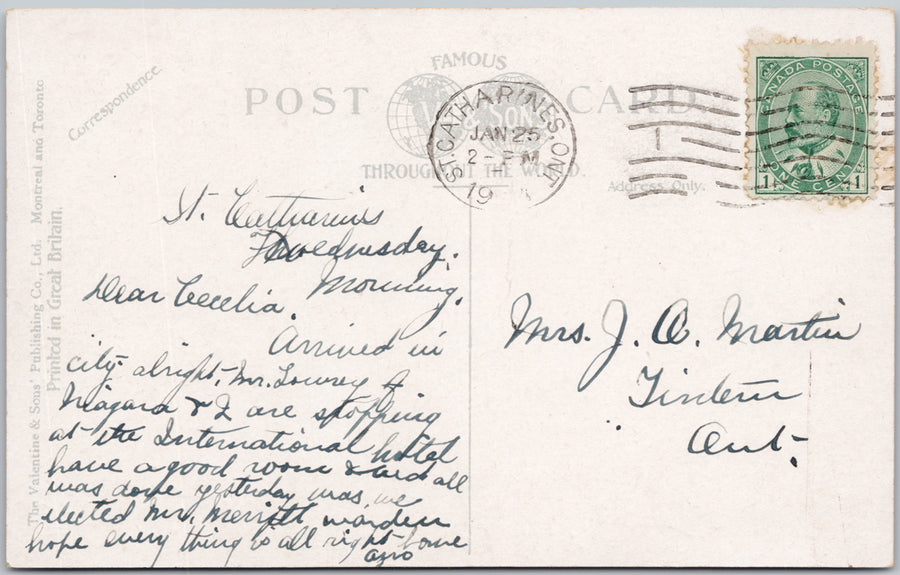 The Valentine & Sons' Publishing Co., Ltd. Montreal and Toronto
Printed in Great Britain.
Correspondence
FAMOUS
POST CARD
& SONS
THROUGHOUT THE WORLD.
Address Only.
ST. CATHARINES, ONT
JAN 25
2 - PM
19
1
CANADA POSTAGE
1 ONE CENT 1
St. Catharins
Wednesday.
Morning.
Dear Cecelia.
Arrived in
city alright, Mr. Lowrey of
Niagara & I are stopping
at the International hotel
have a good room & bed all
was done yesterday was we
elected Mr. Merritt warden
hope every thing is all right home
Mrs. J. A. Martin
Tintern
Ont.